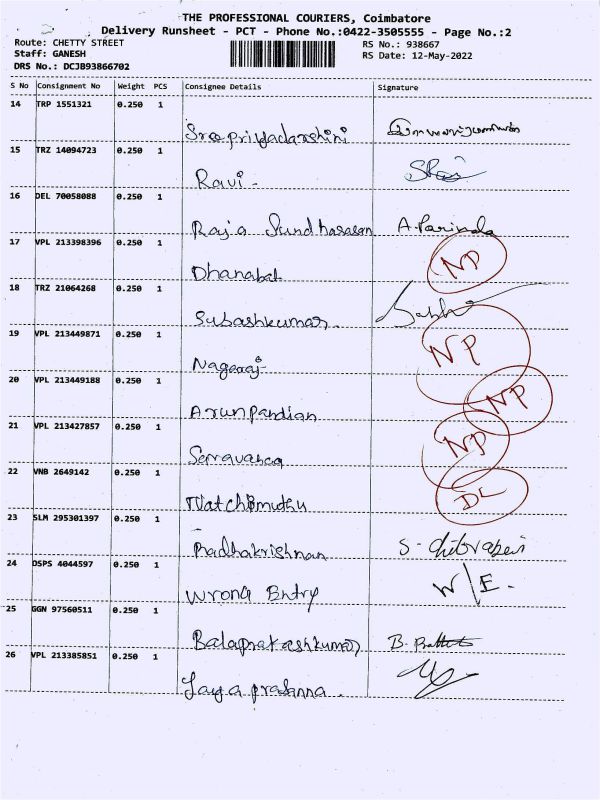 THE PROFESSIONAL COURIERS, Coimbatore
Delivery Runsheet - PCT - Phone No.:0422-3505555 - Page No.:2
Route: CHETTY STREET RS No.: 938667
Staff: GANESH RS Date: 12-May-2022
DRS No.: DCJB93866702
S No Consignment No Weight PCS Consignee Details Signature
14 TRP 1551321 0.250 1
Sreepriyadarshini
15 TRZ 14094723 0.250 1
Ravi -
16 DEL 70058088 0.250 1
Raja Sundharasan
17 VPL 213398396 0.250 1
Dhanabal NP
18 TRZ 21064268 0.250 1
Subashkumar.
19 VPL 213449871 0.250 1
Nagaraj. NP
20 VPL 213449188 0.250 1
Arunpandian NP
21 VPL 213427857 0.250 1
Saravanan NP
22 VNB 2649142 0.250 1
DL
23 SLM 295301397 0.250 1
Radhakrishnan
24 DSPS 4044597 0.250 1
Wrong Entry W/E.
25 GGN 97560511 0.250 1
Balaprakashkumar
26 VPL 213385851 0.250 1
Jayaprasanna.